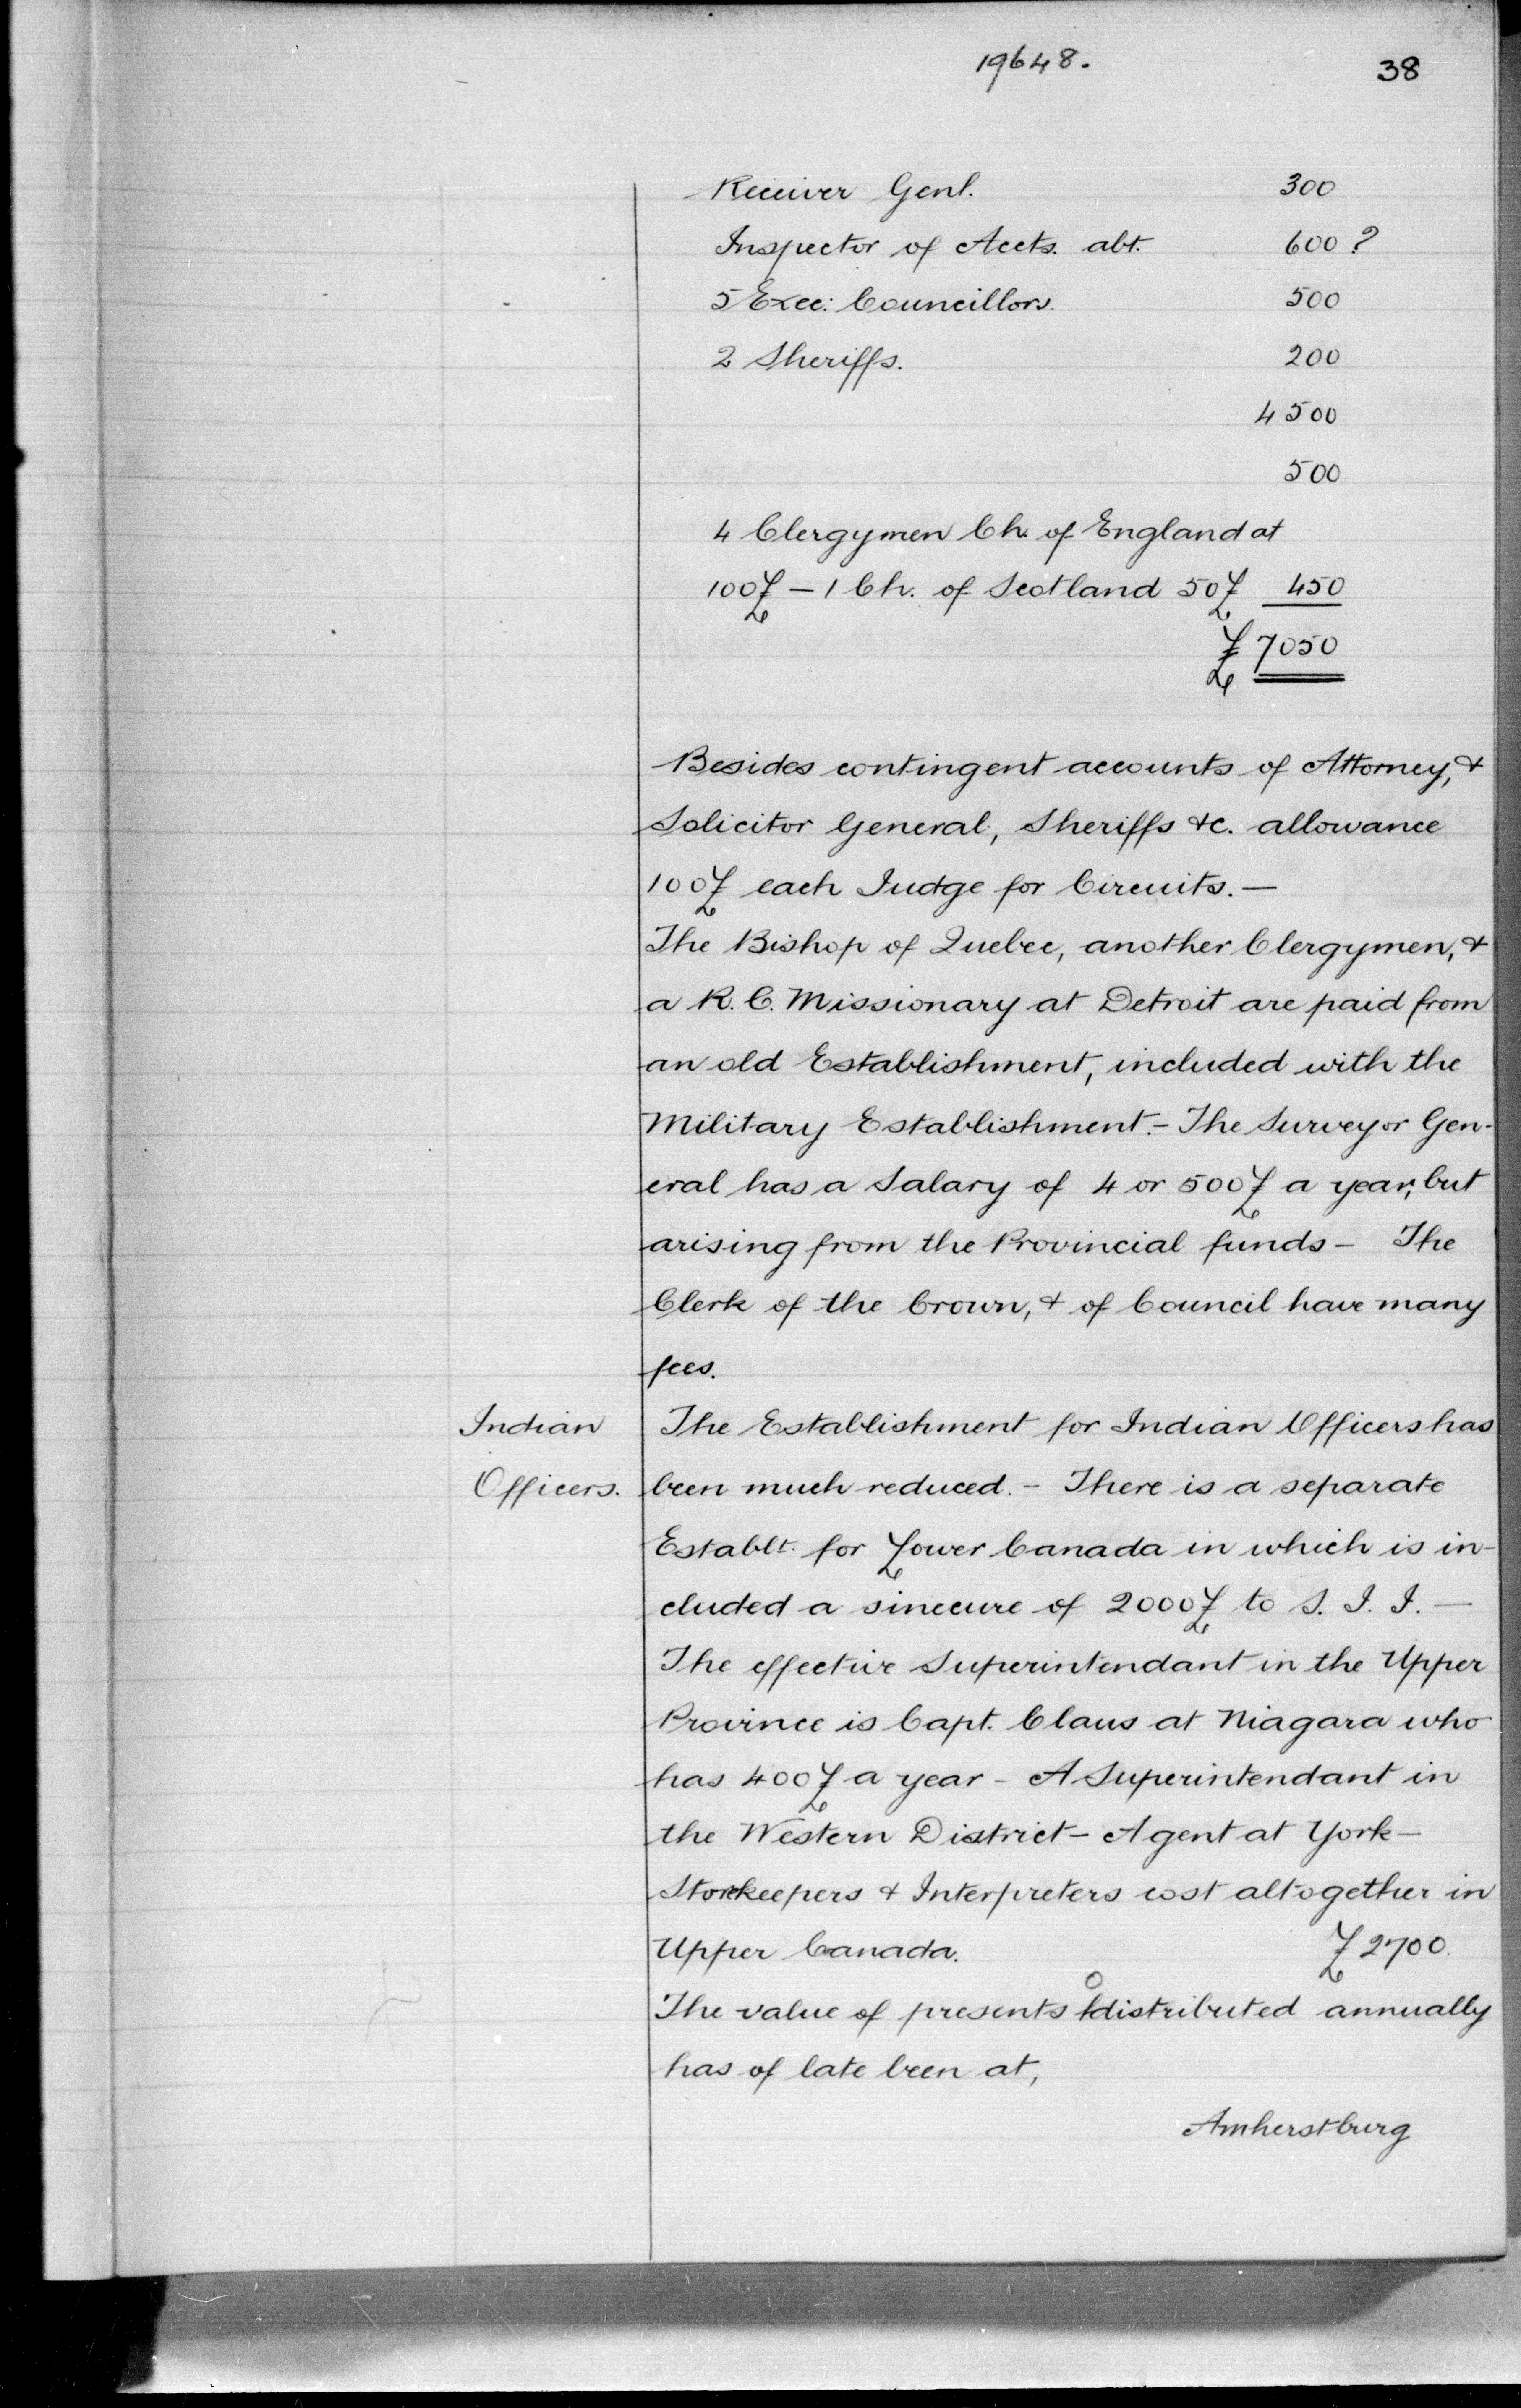 19648.
38
Receiver Genl. 300
Inspector of Accts. abt. 600 ?
5 Exec: Councillors. 500
2 Sheriffs. 200
4500
500
4 Clergymen Ch. of England at
100£ - 1 Ch. of Scotland 50£ 450
£7050
Besides contingent accounts of Attorney, &
Solicitor General, Sheriffs &c. allowance
100£ each Judge for Circuits. —
The Bishop of Quebec, another Clergymen, &
a R. C. Missionary at Detroit are paid from
an old Establishment, included with the
Military Establishment. - The Surveyor Gen-
eral has a Salary of 4 or 500£ a year, but
arising from the Provincial funds - The
Clerk of the Crown, & of Council have many
fees.
Indian The Establishment for Indian Officers has
Officers. been much reduced. - There is a separate
Establt. for Lower Canada in which is in-
cluded a sinecure of 2000£ to S. J. J. —
The effective Superintendant in the Upper
Province is Capt. Claus at Niagara who
has 400£ a year - A Superintendant in
the Western District - Agent at York -
Storekeepers & Interpreters cost altogether in
Upper Canada. £2700.
The value of presents distributed annually
has of late been at,
Amherstburg